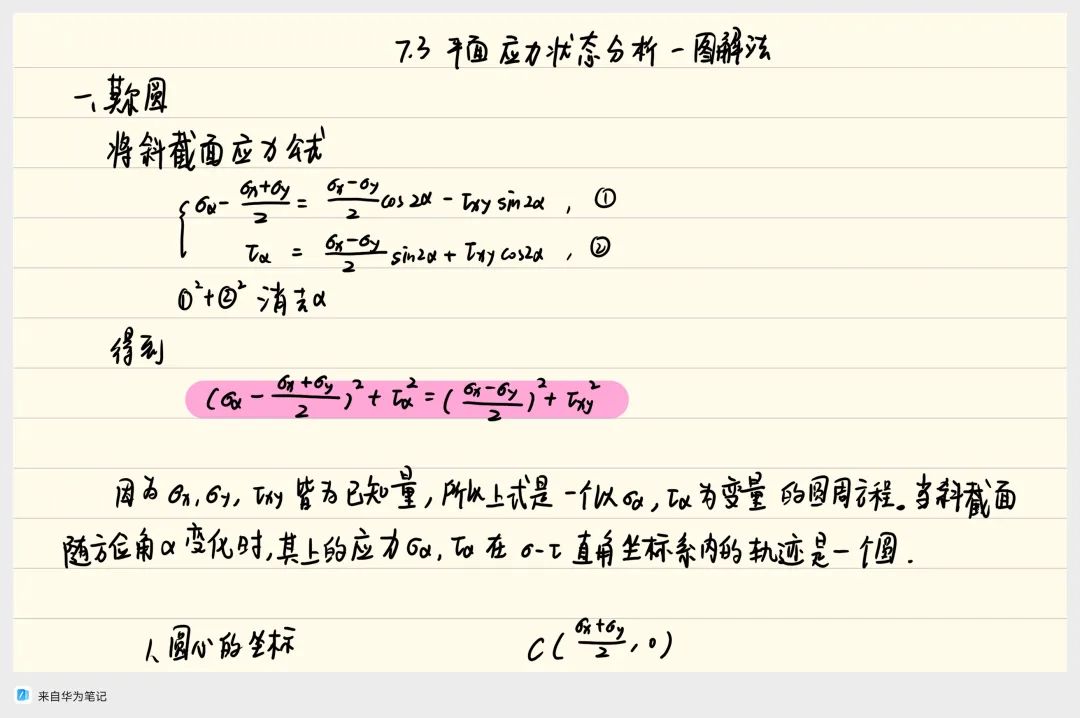 7.3 平面应力状态分析-图解法
一、莫尔圆
将斜截面应力公式
{ σα - (σx+σy)/2 = (σx-σy)/2 cos2α - τxy sin2α , ①
τα = (σx-σy)/2 sin2α + τxy cos2α , ②
①²+②² 消去α
得到
(σα - (σx+σy)/2)² + τα² = ((σx-σy)/2)² + τxy²
因为 σx, σy, τxy 皆为已知量, 所以上式是一个以σα, τα为变量的圆周方程。当斜截面
随方位角α变化时, 其上的应力σα, τα 在 σ-τ 直角坐标系内的轨迹是一个圆.
1、圆心的坐标 C( (σx+σy)/2 , 0)
来自华为笔记